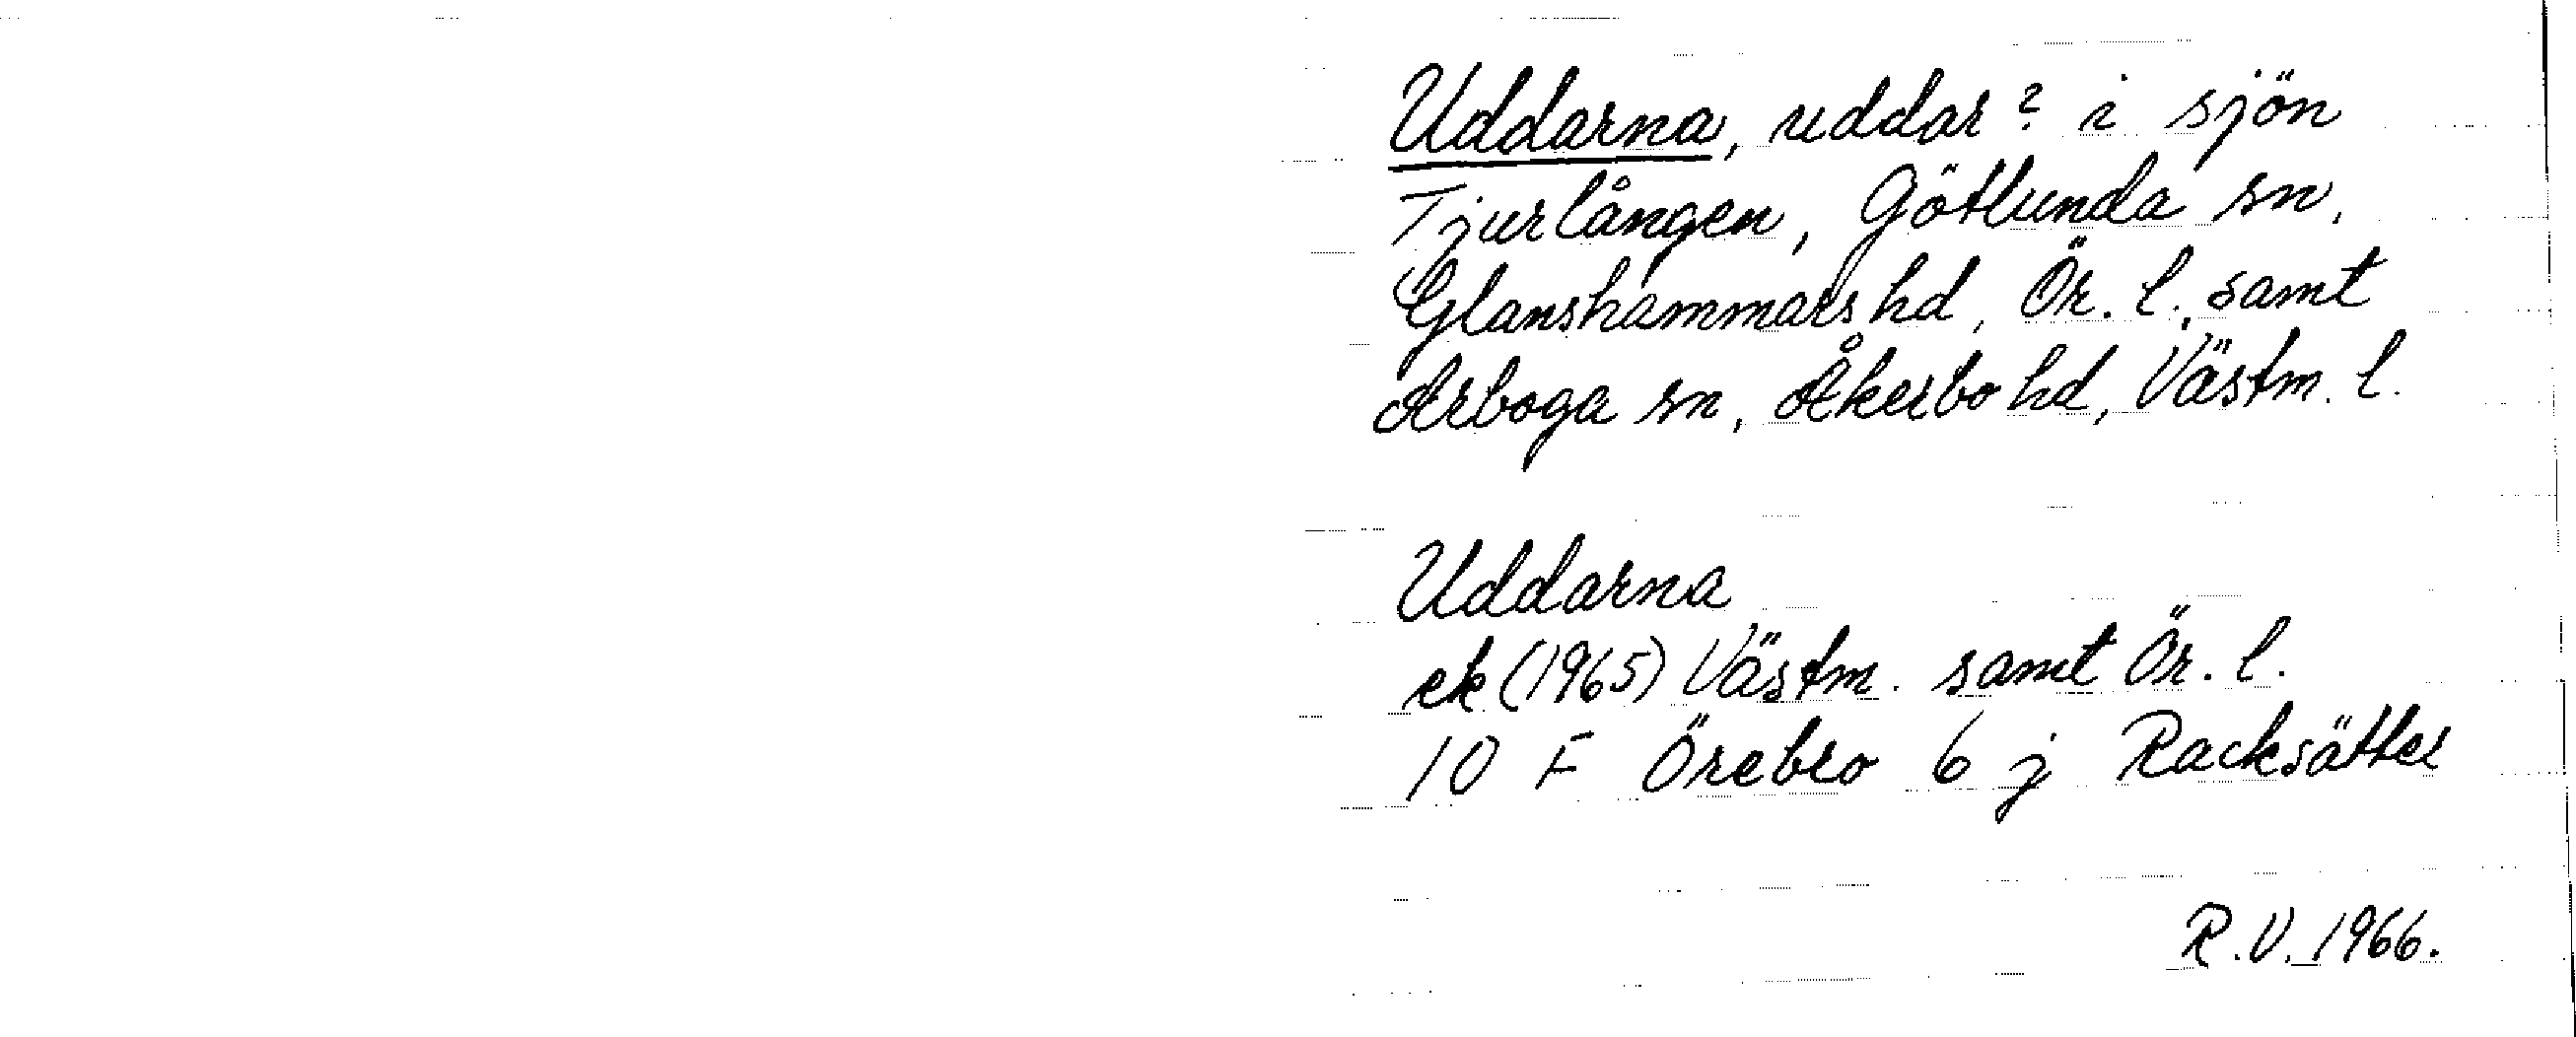 Uddarna, uddar? i sjön
Tjurlången, Götlunda sn,
Glanshammars hd, Ör. l., samt
Arboga sn, Åkerbo hd, Västm. l.
Uddarna
ek (1965) Västm. samt Ör. l.
10 F Örebro 6 j Racksätter
R.V. 1966.